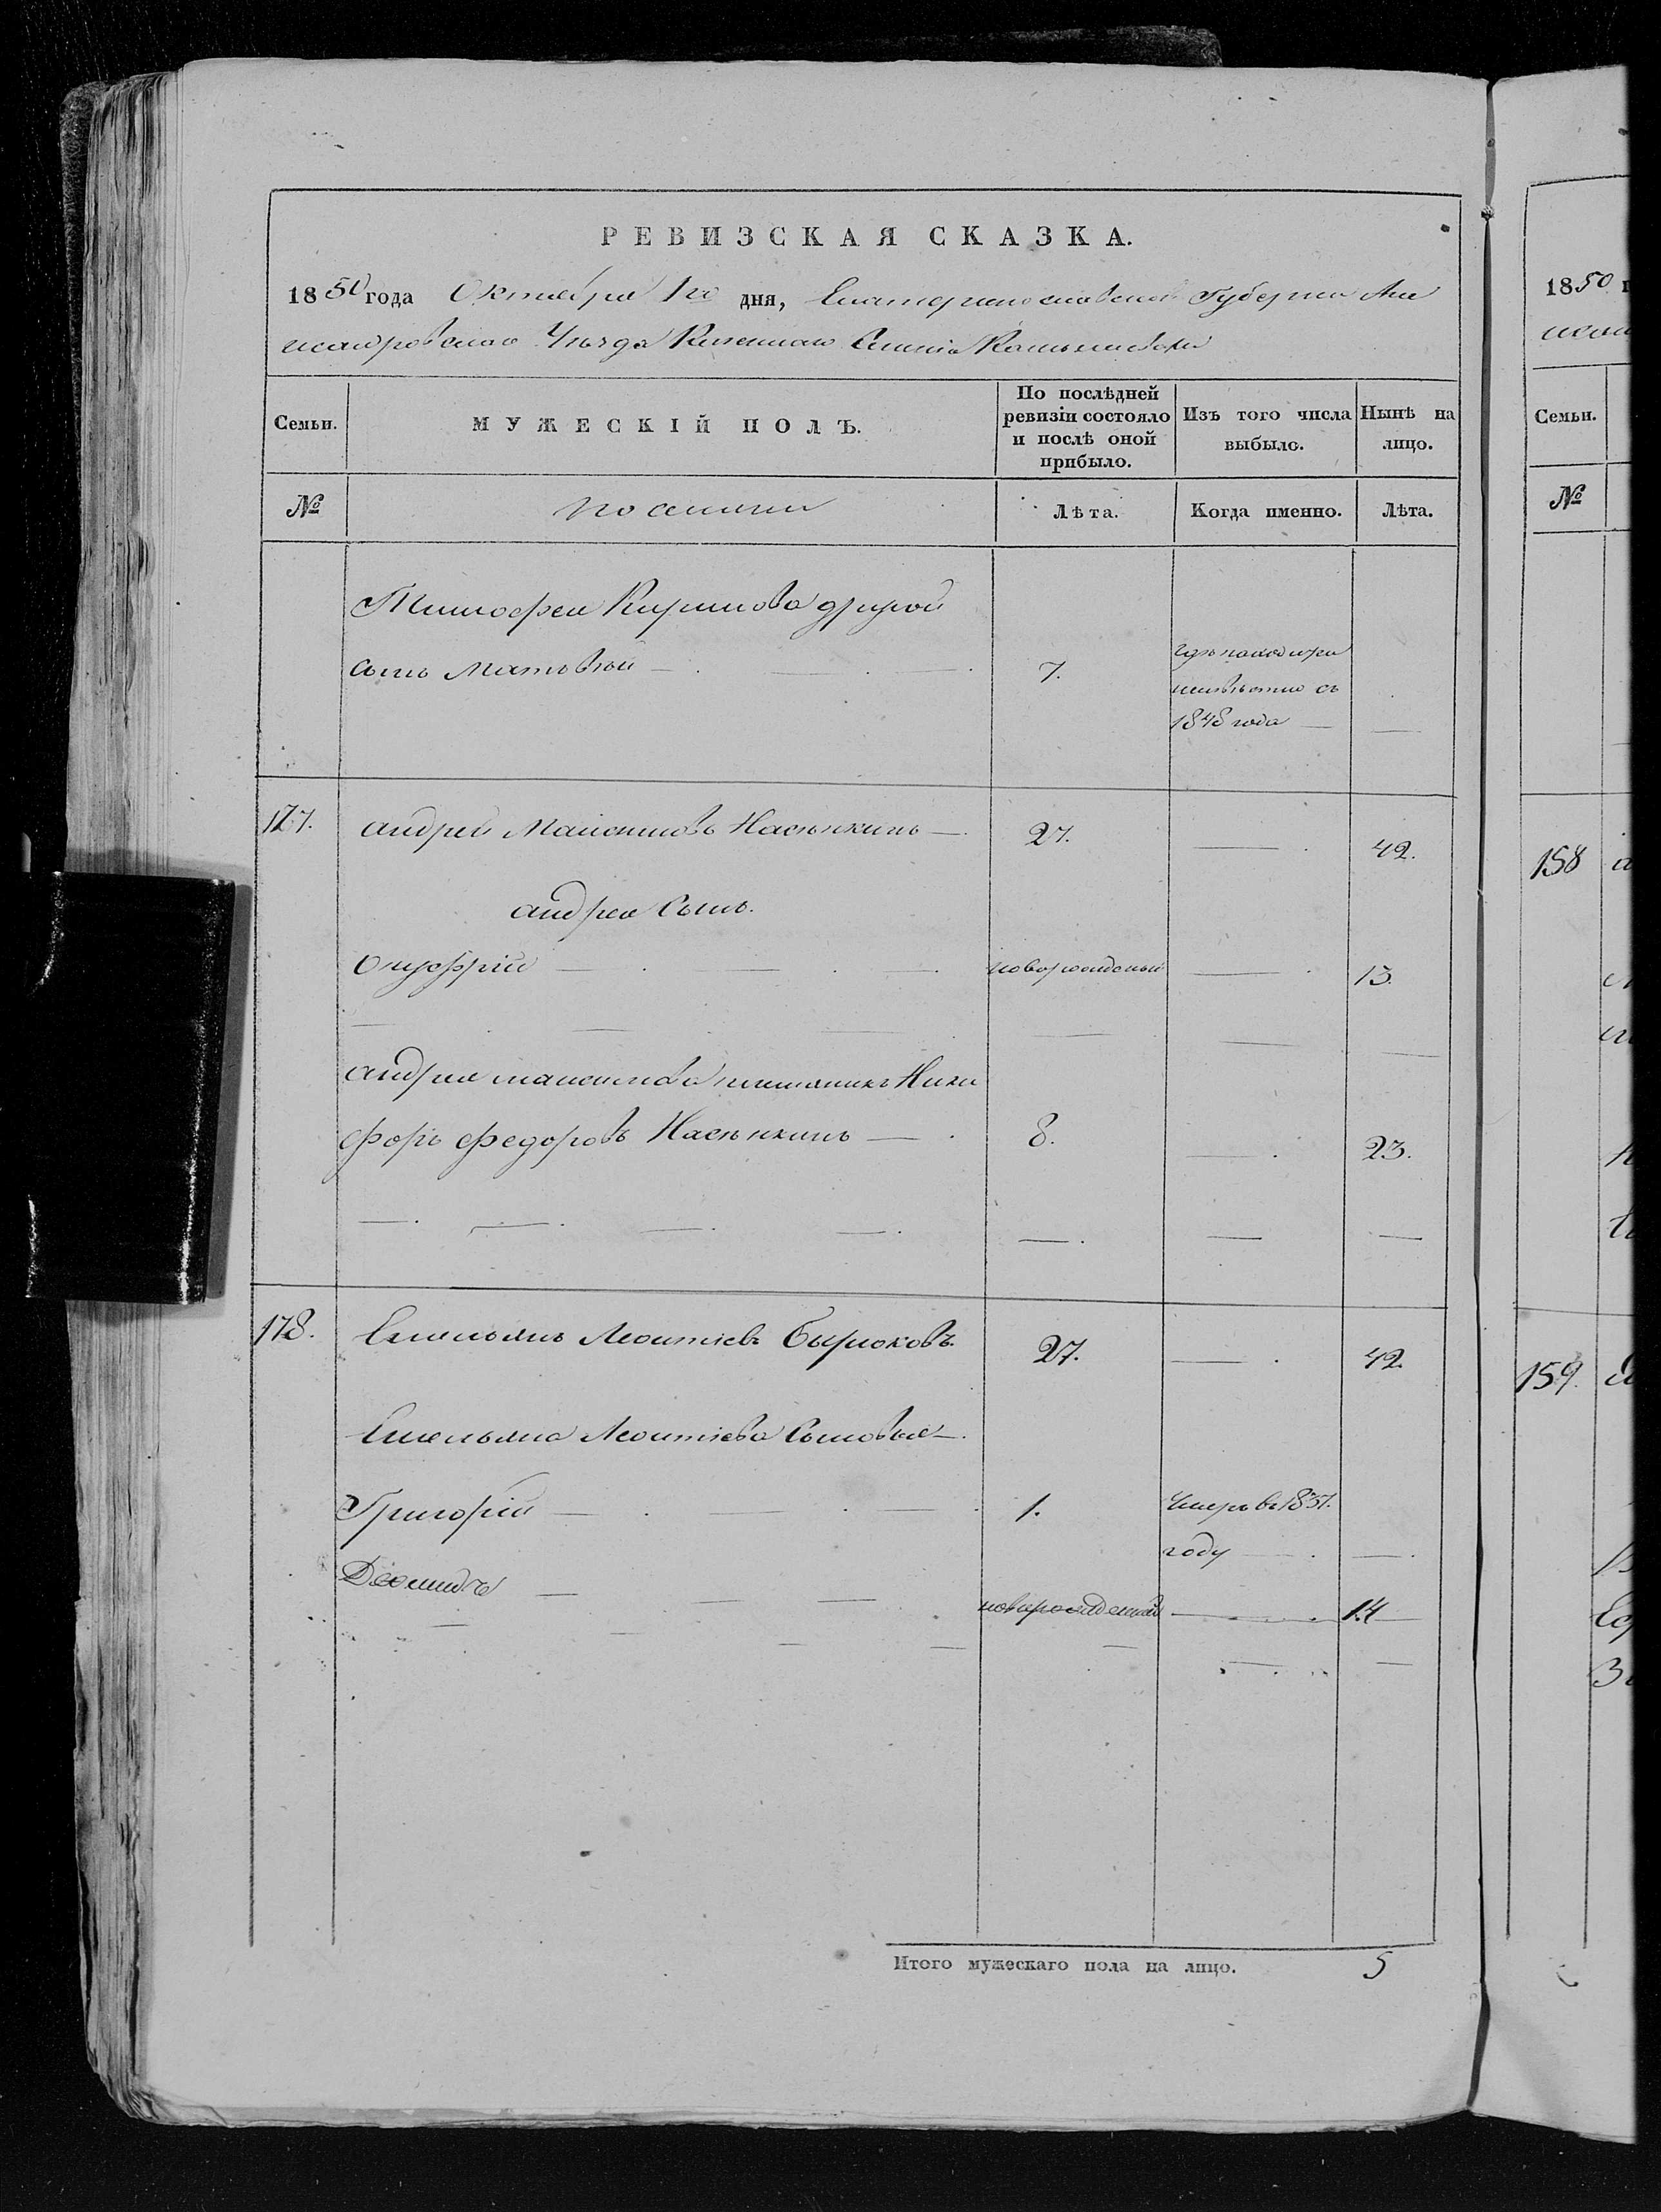 РЕВИЗСКАЯ СКАЗКА.
1850 года Октября 1го дня, Екатеринославской Губернии Але
ксандровского Уѣзда Казеннаго Селенія
Семьи.
МУЖЕСКІЙ ПОЛЪ.
По послѣдней ревизіи состояло и послѣ оной прибыло.
Изъ того числа выбыло.
Нынѣ на лицо.
№
Лѣта.
Когда именно.
Лѣта.
Тимофея другой
сынъ Матвѣй — 7.
съ
1848 года —
177. Андрей Максимовъ — 27. — 42.
Андрея Сынъ.
Онуфрій — новорожденый — 13.
Андрея Максимова племяникъ Ники
форъ Федоровъ — 8. — 23.
178. Емельянъ Леонтіевъ Бырюковъ. 27. — 42.
Емельяна Леонтіева Сыновья —
Григорій — 1. Умеръ въ 1837.
году —
Деомидъ — новорожденый — 14
Итого мужескаго пола на лицо. 5
1850
Семьи.
№
158
159.